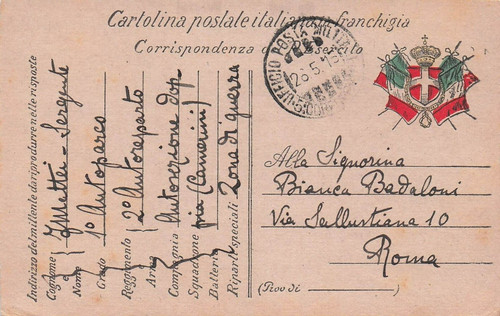 Cartolina postale italiana in franchigia
Corrispondenza del R. Esercito
UFFICIO POSTA MILITARE
26.5.
Alla Signorina
Bianca Badaloni
Via Sallustiana 10
Roma
(Prov di)
Indirizzo del mittente da riprodurre nelle risposte
Cognome e Nome
Sergente
Grado 1º Autoparco
Reggimento 2º Autoreparto
Arma
Compagnia Autosezione dop-
Squadrone pia (Camerini)
Batteria
Riparti speciali Zona di guerra